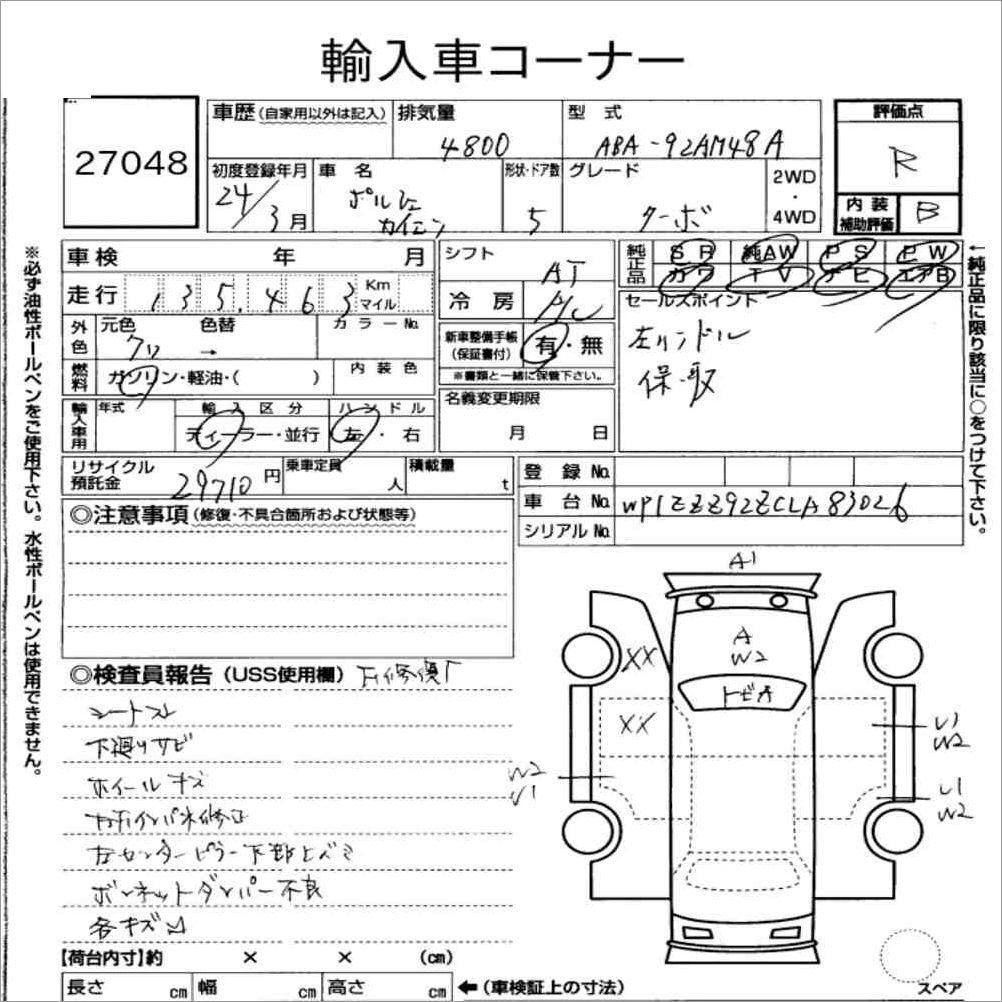 輸入車コーナー
27048
車歴(自家用以外は記入)
排気量
4800
型 式
ABA-92AM48A
評価点
R
初度登録年月
24/3月
車 名
ポルシェ
カイエン
形状・ドア数
5
グレード
ターボ
2WD
・
4WD
内 装
補助評価
B
※必ず油性ボールペンをご使用下さい。水性ボールペンは使用できません。
車検 年 月
走行 135,463 Km
マイル
シフト
AT
冷 房
A/C
純正品
SR 純AW PS PW
カワ TV ナビ エアB
←純正品に限り該当に○をつけて下さい。
外色
元色 色替 カラーNo.
クロ →
新車整備手帳
(保証書付)
有・無
※書類と一緒に保管下さい。
セールスポイント
左ハンドル
保・取
燃料
ガソリン・軽油・( )
内 装 色
名義変更期限
月 日
輸入車用
年式
輸 入 区 分
ディーラー・並行
ハ ン ド ル
左・右
リサイクル
預託金
29710円
乗車定員
人
積載量
t
登 録 No.
車 台 No. WP1ZZZ92ZCLA83026
シリアル No.
◎注意事項(修復・不具合箇所および状態等)
◎検査員報告(USS使用欄)
シートスレ
下廻りサビ
ホイールキズ
ボンネットダンパー不良
各キズ凹
A1
A
W2
トビA
XX
XX
W2
U1
U1
W2
U1
W2
【荷台内寸】約 × × (cm)
長さ cm 幅 cm 高さ cm ←(車検証上の寸法)
スペア